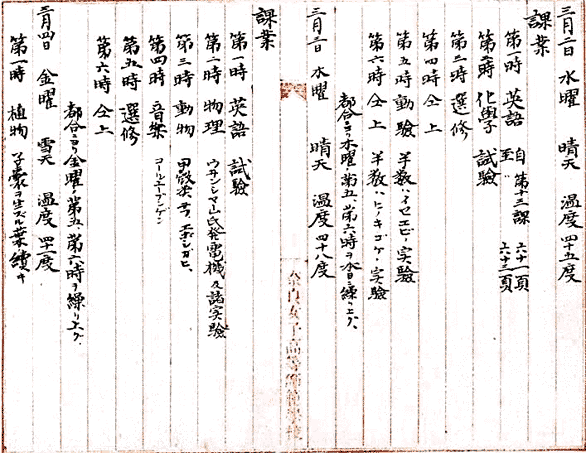 三月二日 水曜 晴天 温度 四十五度
課業
第一時 英語 自 第十三課 六十一頁
至〃 六十三頁
第二時 化學 試驗
第三時 選修
第四時 仝上
第五時 動驗 半数ハイセエビノ実験
第六時 仝上 半数ハヒノキゴケノ実驗
都合ニヨリ水曜第五、第六時ヲ本日ニ繰リ上グ、
三月三日 水曜 晴天 温度 四十八度
課業
第一時 英語 試驗
第二時 物理 ウヰンシマーﾞ氏発電機及諸実驗
第三時 動物 甲殻 エボシガヒ、
第四時 音楽 コールユーブンゲン
第五時 選修
第六時 仝上
都合ニヨリ金曜ノ第五、第六時ヲ繰リ上グ
三月四日 金曜 雪天 温度 四十一度
第一時 植物 子嚢ヲ生ズル葉 續キ
奈良女子高等師範學校